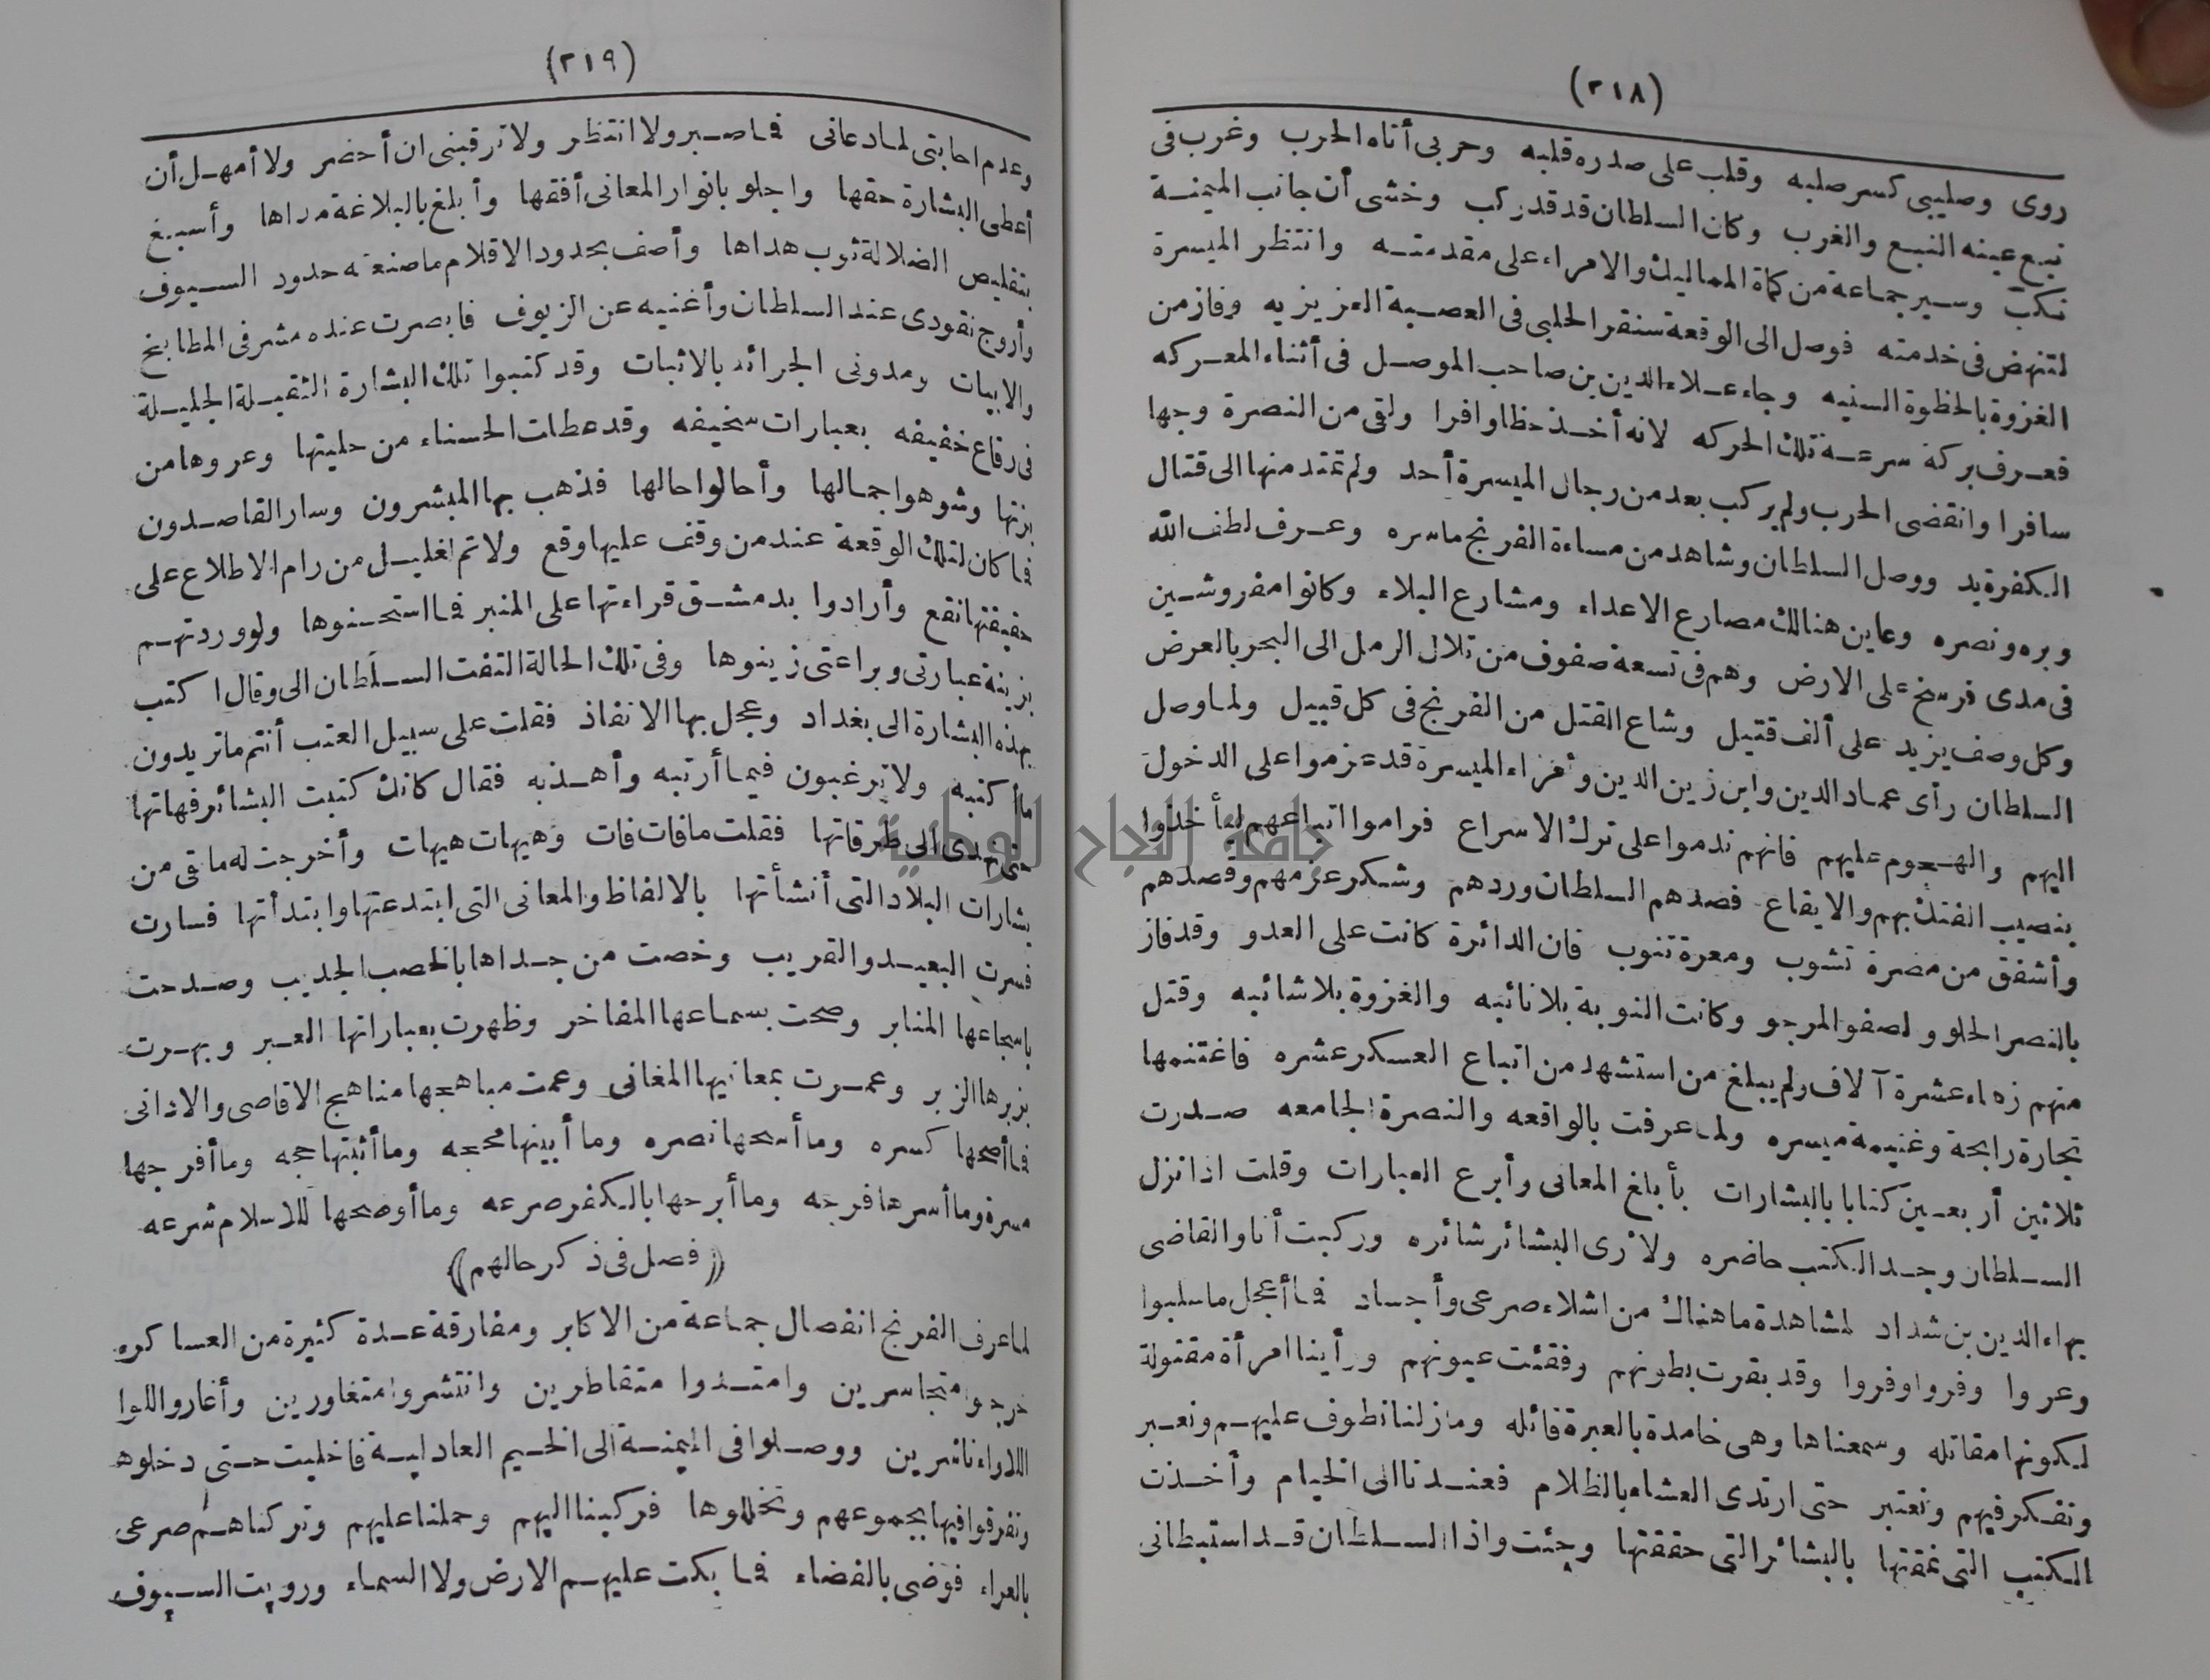 (٢١٨)
روى وصليبى كسر صلبه وقلب على صدره قلبه وحربى أتاه الحرب وغرب فى
نبع عينه النبع والغرب وكان السلطان قد قدركب وخشى أن جانب الميمنة
نكب وسير جماعة من كماة المماليك والامراء على مقدمته وانتظر الميسرة
لتنهض فى خدمته فوصل الى الوقعة سنقر الحلبى فى العصبة العزيزيه وفاز من
الغزوة بالحظوة السنيه وجاء علاء الدين بن صاحب الموصل فى أثناء المعركه
فعرف بركة سرعة تلك الحركه لانه أخذ حظا وافرا ولقى من النصرة وجها
سافرا وانقضى الحرب ولم يركب بعد من رجال الميسرة أحد ولم تمتد منها الى قتال
الكفرة يد ووصل السلطان وشاهد من مساءة الفرنج ماسره وعرف لطف الله
وبره ونصره وعاين هنالك مصارع الاعداء ومشارع البلاء وكانوا مفروشين
فى مدى فرسخ على الارض وهم فى تسعة صفوف من تلال الرمل الى البحر بالعرض
وكل وصف يزيد على ألف قتيل وشاع القتل من الفرنج فى كل قبيل ولما وصل
السلطان رأى عماد الدين وابن زين الدين وأمراء الميسرة قد عزموا على الدخول
اليهم والهجوم عليهم فانهم ندموا على ترك الاسراع فراموا اتباعهم ليأخذوا
بنصيب الفتك بهم والايقاع فصدهم السلطان وردهم وشكر عزمهم وقصدهم
وأشفق من مضرة تشوب ومعرة تنوب فان الدائرة كانت على العدو وقد فاز
بالنصر الحلو ولصفو المرجو وكانت النوبة بلا نائبه والغزوة بلا شائبه وقتل
منهم زهاء عشرة آلاف ولم يبلغ من استشهد من اتباع العسكر عشره فاغتنمها
تجارة رابحة وغنيمة ميسره ولما عرفت بالواقعه والنصرة الجامعه صدرت
ثلاثين أربعين كتابا بالبشارات بأبلغ المعانى وأبرع العبارات وقلت اذا نزل
السلطان وجد الكتب حاضره ولأرى البشائر شائره وركبت أنا والقاضى
بهاء الدين بن شداد لمشاهدة ما هناك من اشلاء صرعى وأجساد فما أعجل ما سلبوا
وعروا وفروا وفروا وقد بقرت بطونهم وفقئت عيونهم ورأينا امرأة مقتولة
لكونها مقاتله وسمعناها وهى خامدة بالعبرة قائله وما زلنا نطوف عليهم ونعبر
ونفكر فيهم ونعتبر حتى ارتدى العشاء بالظلام فعدنا الى الخيام وأخذت
الكتب التى نمقتها بالبشائر التى حققتها وجئت واذا السلطان قد استبطانى
(٢١٩)
وعدم اجابتى لما دعانى فما صبر ولا انتظر ولا ترقبنى ان أحضر ولا أمهل أن
أعطى البشارة حقها واجلو بانوار المعانى أفقها وأبلغ بالبلاغة مداها وأسبغ
بتقليص الضلالة ثوب هداها وأصف بحدود الاقلام ما صنعته حدود السيوف
وأروج نقودى عند السلطان وأغنيه عن الزيوف فابصرت عنده مشرفى المطابخ
والابيات ومدونى الجرائد بالاثبات وقد كتبوا تلك البشارة الثقيلة الجليلة
فى رقاع خفيفه بعبارات سخيفه وقد عطلت الحسناء من حليتها وعروها من
بزتها وشوهوا جمالها وأحالوا حالها فذهب بها المبشرون وسار القاصدون
فما كان لتلك الوقعة عند من وقف عليها وقع ولا تم لغليل من رام الاطلاع على
حقيقتها نقع وأرادوا بدمشق قراءتها على المنبر فما استحسنوها ولو وردتهم
بزينة عبارتى وبراعتى زينوها وفى تلك الحالة التفت السلطان الى وقال اكتب
بهذه البشارة الى بغداد وعجل بها الانفاذ فقلت على سبيل العتب أنتم ما تريدون
ما أكتبه ولا ترغبون فيما أرتبه وأهذبه فقال كانك كتبت البشائر فهاتها
حتى تهدى الى طرقاتها فقلت ما فات فات وهيهات هيهات وأخرجت له ما بقى من
بشارات البلاد التى أنشأتها بالالفاظ والمعانى التى ابتدعتها وابتدأتها فسارت
فسرت البعيد والقريب وخصت من جداها بالخصب الجديب وصدحت
باسجاعها المنابر وصحت بسماعها المفاخر وظهرت بعباراتها العبر وبهرت
بزبرها الزبر وعمرت بمعانيها المغانى وعمت مباهجها مناهج الاقاصى والادانى
فما أصحها كسره وما أسحها نصره وما أبينها محجه وما أثبتها حجه وما أفرجها
مسرة وما أسرها فرجه وما أبرحها بالكفر صرعه وما أوضحها للاسلام شرعه
((فصل فى ذكر حالهم))
لما عرف الفرنج انفصال جماعة من الاكابر ومفارقة عدة كثيرة من العساكر
خرجوا متجاسرين وامتدوا متقاطرين وانتشروا متغاورين وأغاروا للوا
اللاواء ناشرين ووصلوا فى الميمنة الى الخيم العادلية فاخليت حتى دخلوها
وتفرقوا فيها بجموعهم وتخللوها فركبنا اليهم وحملنا عليهم وتركناهم صرعى
بالعراء فوضى بالفضاء فما بكت عليهم الارض ولا السماء ورويت السيوف
جامعة النجاح الوطنية